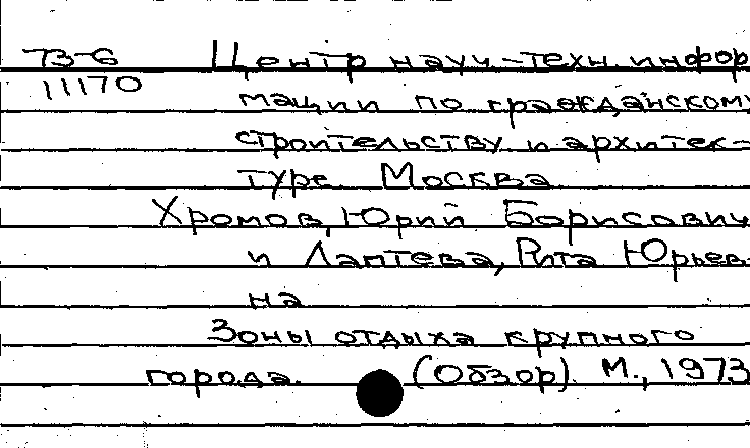 73-6 Центр науч-техн. инфор
11170 мации по гражданскому
строительству и архитек-
туре. Москва
Хромов, Юрий Борисович
и Лаптева, Рита Юрьев
на
Зоны отдыха крупного
города. (Обзор). М., 1973